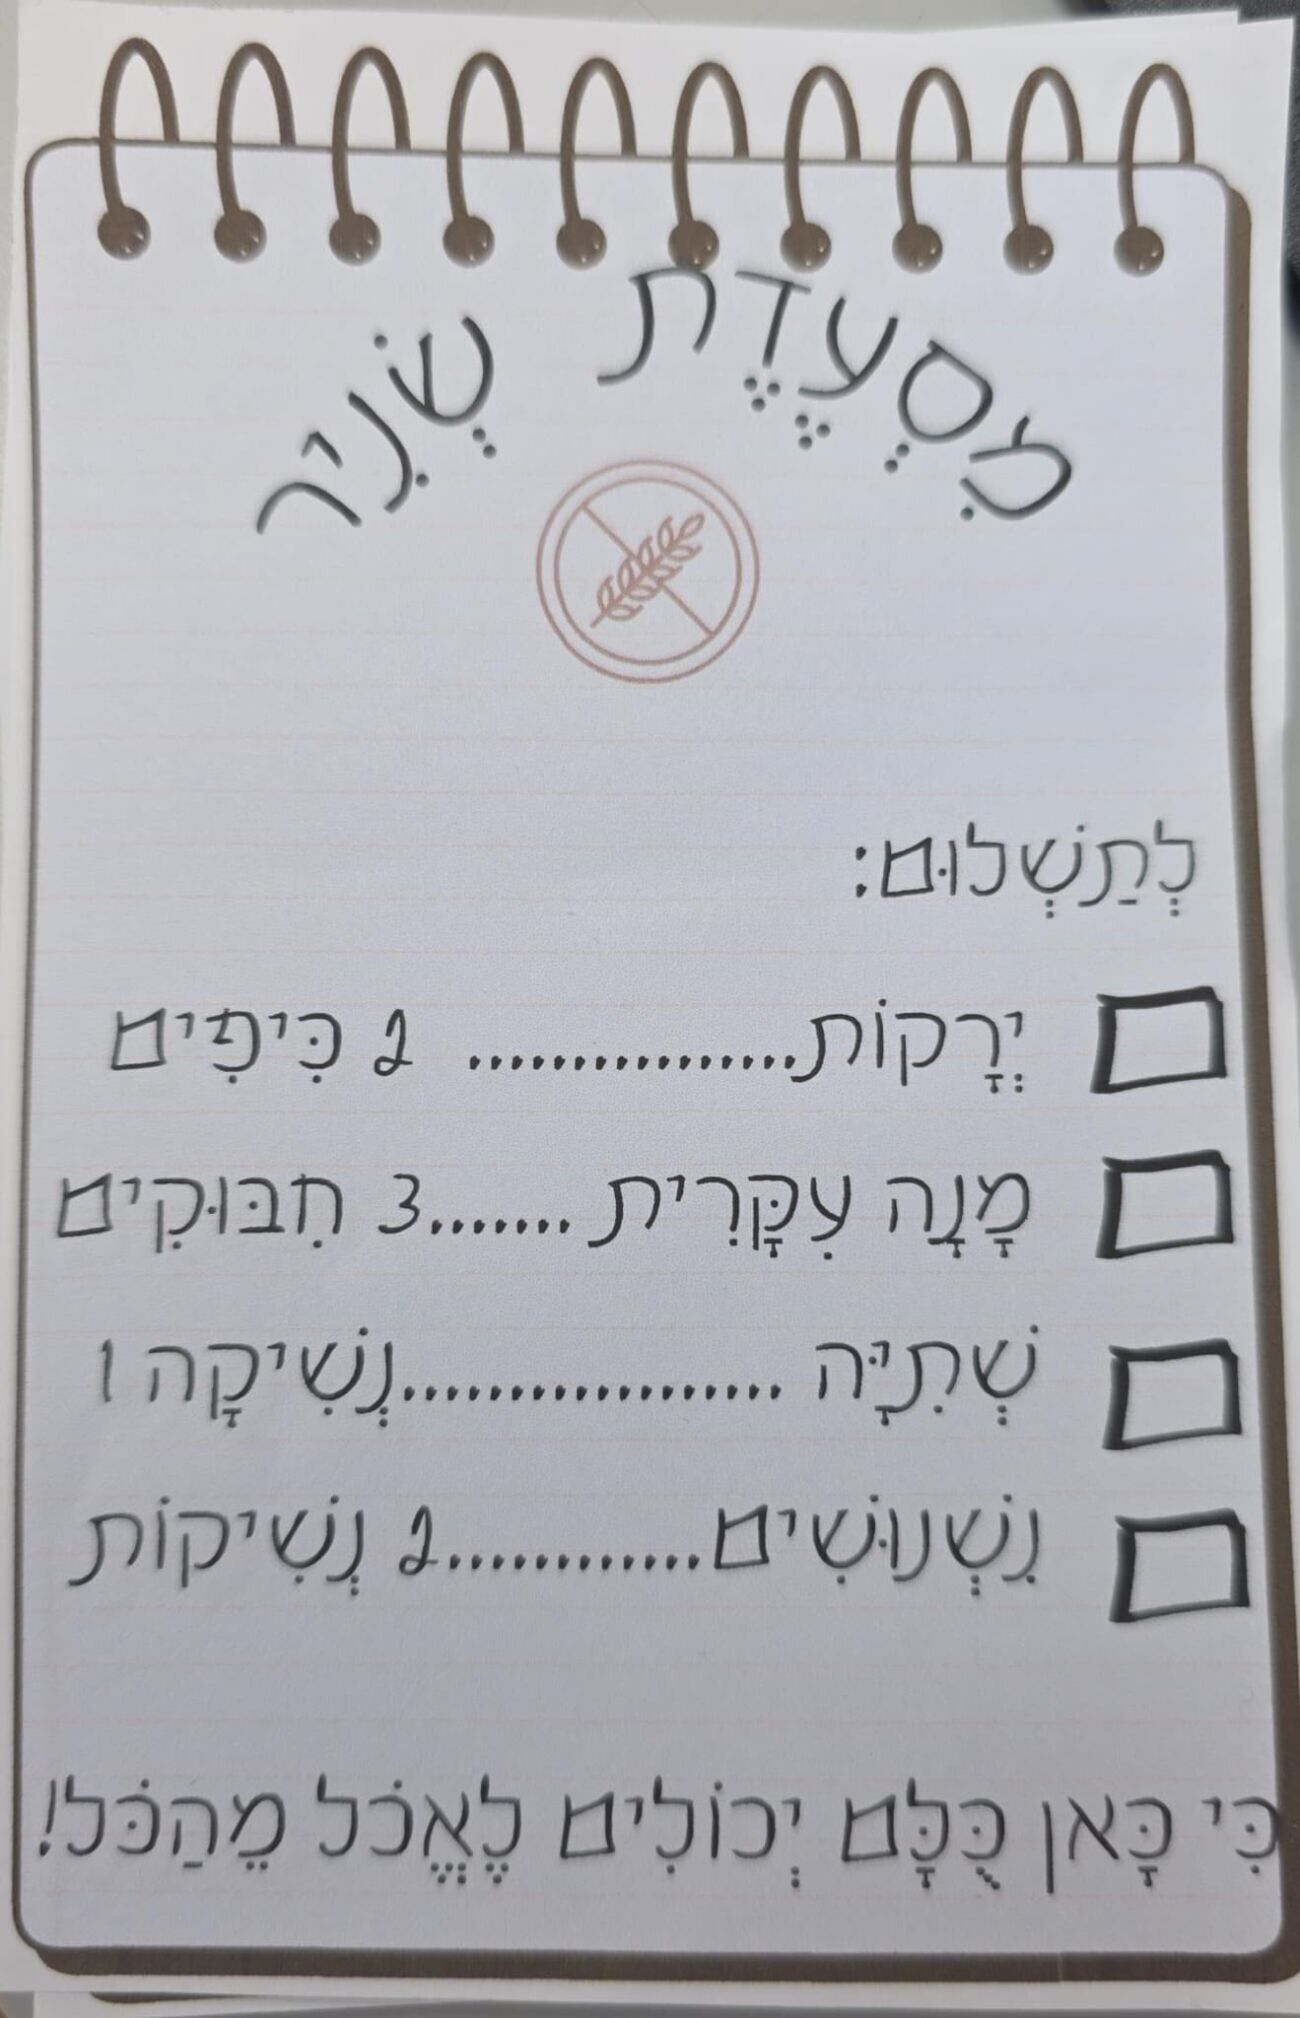 מִסְעֶדֶת שְׂנִיר
לְתַשְׁלוּם:
יְרָקוֹת................ 2 כִּיפִים
מָנָה עִקָּרִית .......3 חִבּוּקִים
שְׁתִיָּה ...................נְשִׁיקָה 1
נִשְׁנוּשִׁים.............2 נְשִׁיקוֹת
כִּי כָּאן כֻּלָּם יְכוֹלִים לֶאֱכֹל מֵהַכֹּל!